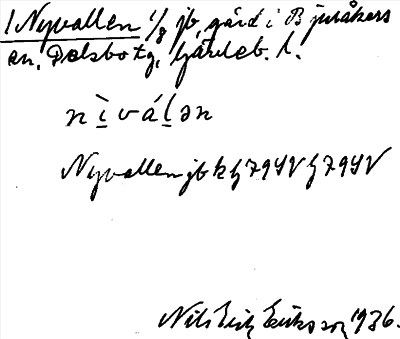 1 Nyvallen 1/8 jb, gård i Bjuråkers
sn, Delsbo tg, Gävleb. l.
ni̱váḻən
Nyvallen jb k
Nils Erik Eriksson 1936.